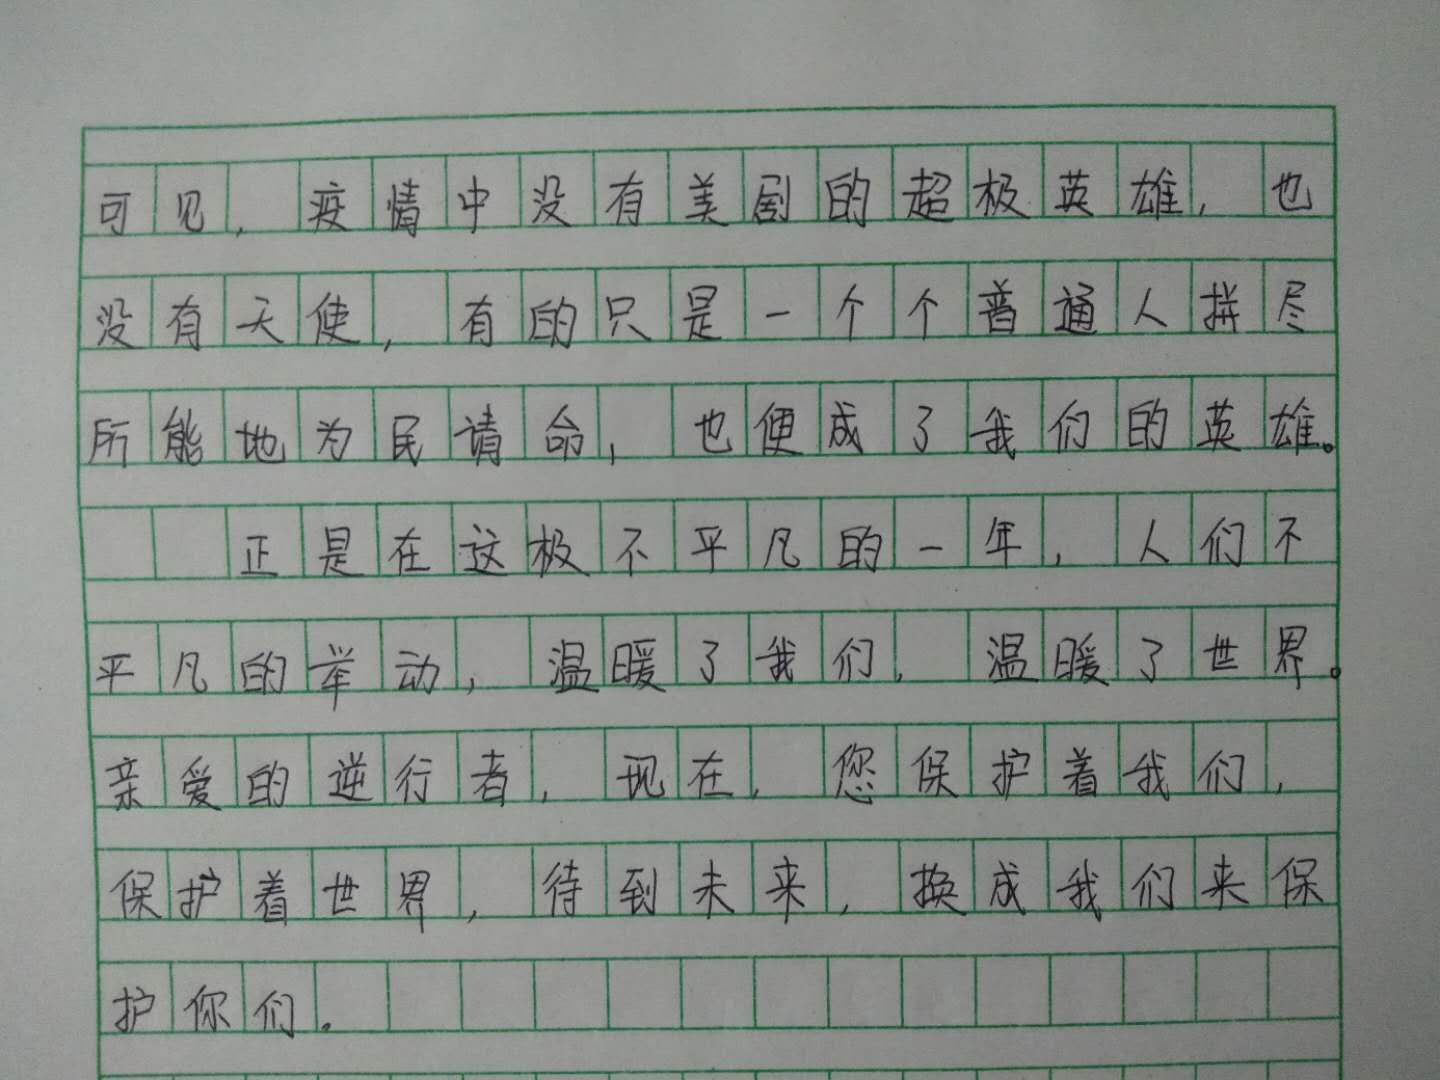 可见，疫情中没有美剧的超极英雄，也
没有天使，有的只是一个个普通人拼尽
所能地为民请命，也便成了我们的英雄。
正是在这极不平凡的一年，人们不
平凡的举动，温暖了我们，温暖了世界。
亲爱的逆行者，现在，您保护着我们，
保护着世界，待到未来，换成我们来保
护你们。